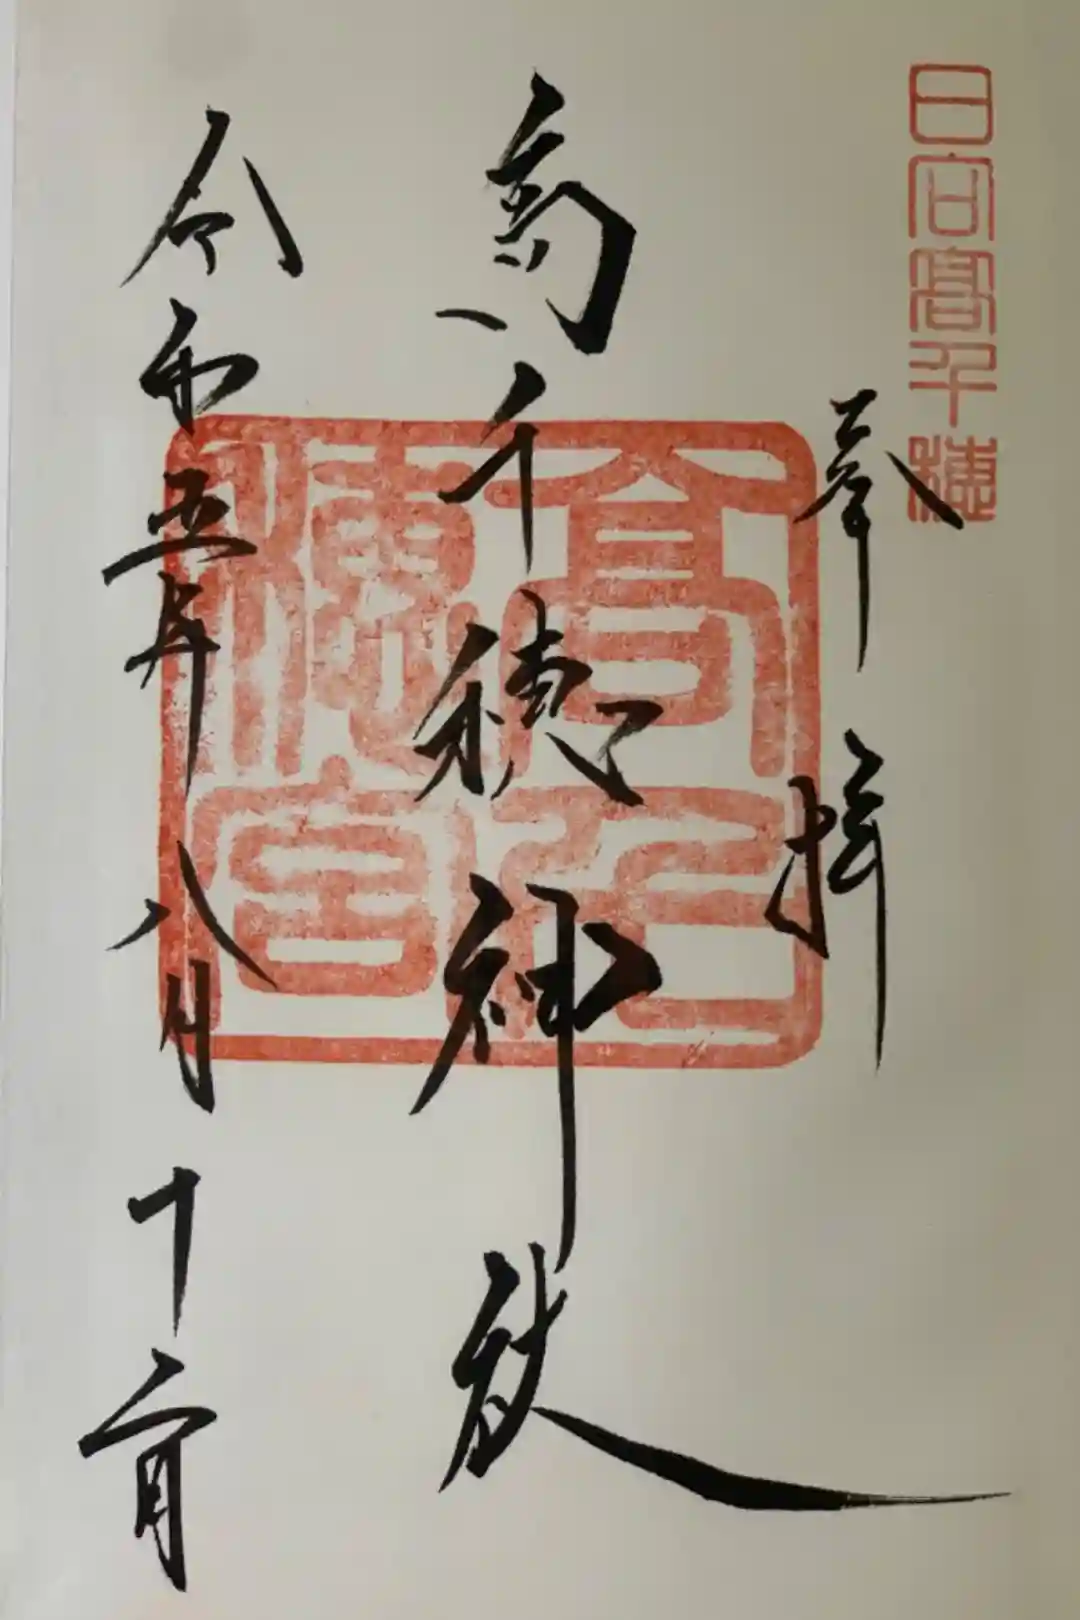 日向髙千穂
奉拝
高千穂神社
高千穂宮
令和五年八月十二日